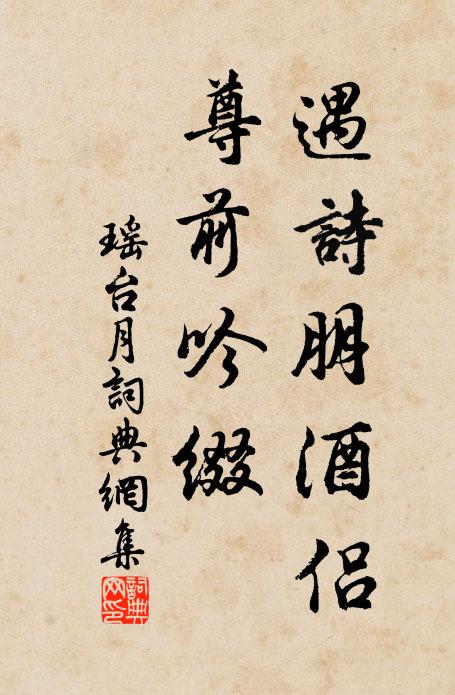 遇詩朋酒侶
尊前吟綴
瑶台月詞典網集
詞典网印